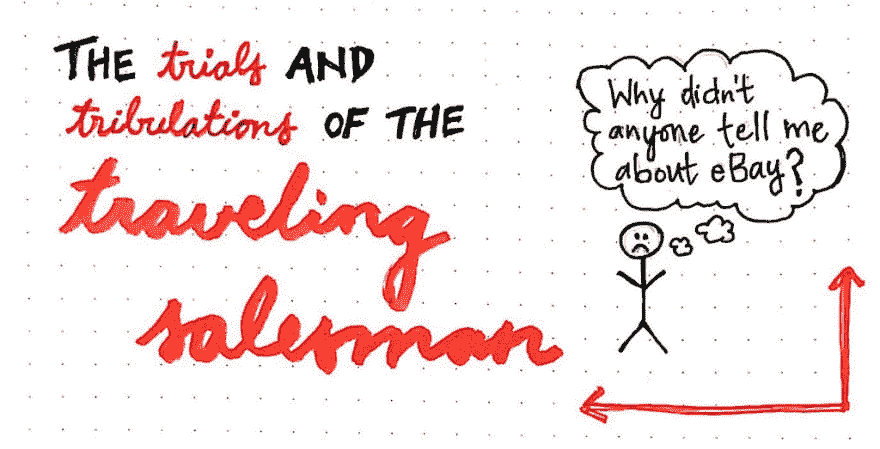 THE trials AND
tribulations OF THE
traveling
salesman
Why didn't
anyone tell me
about eBay?